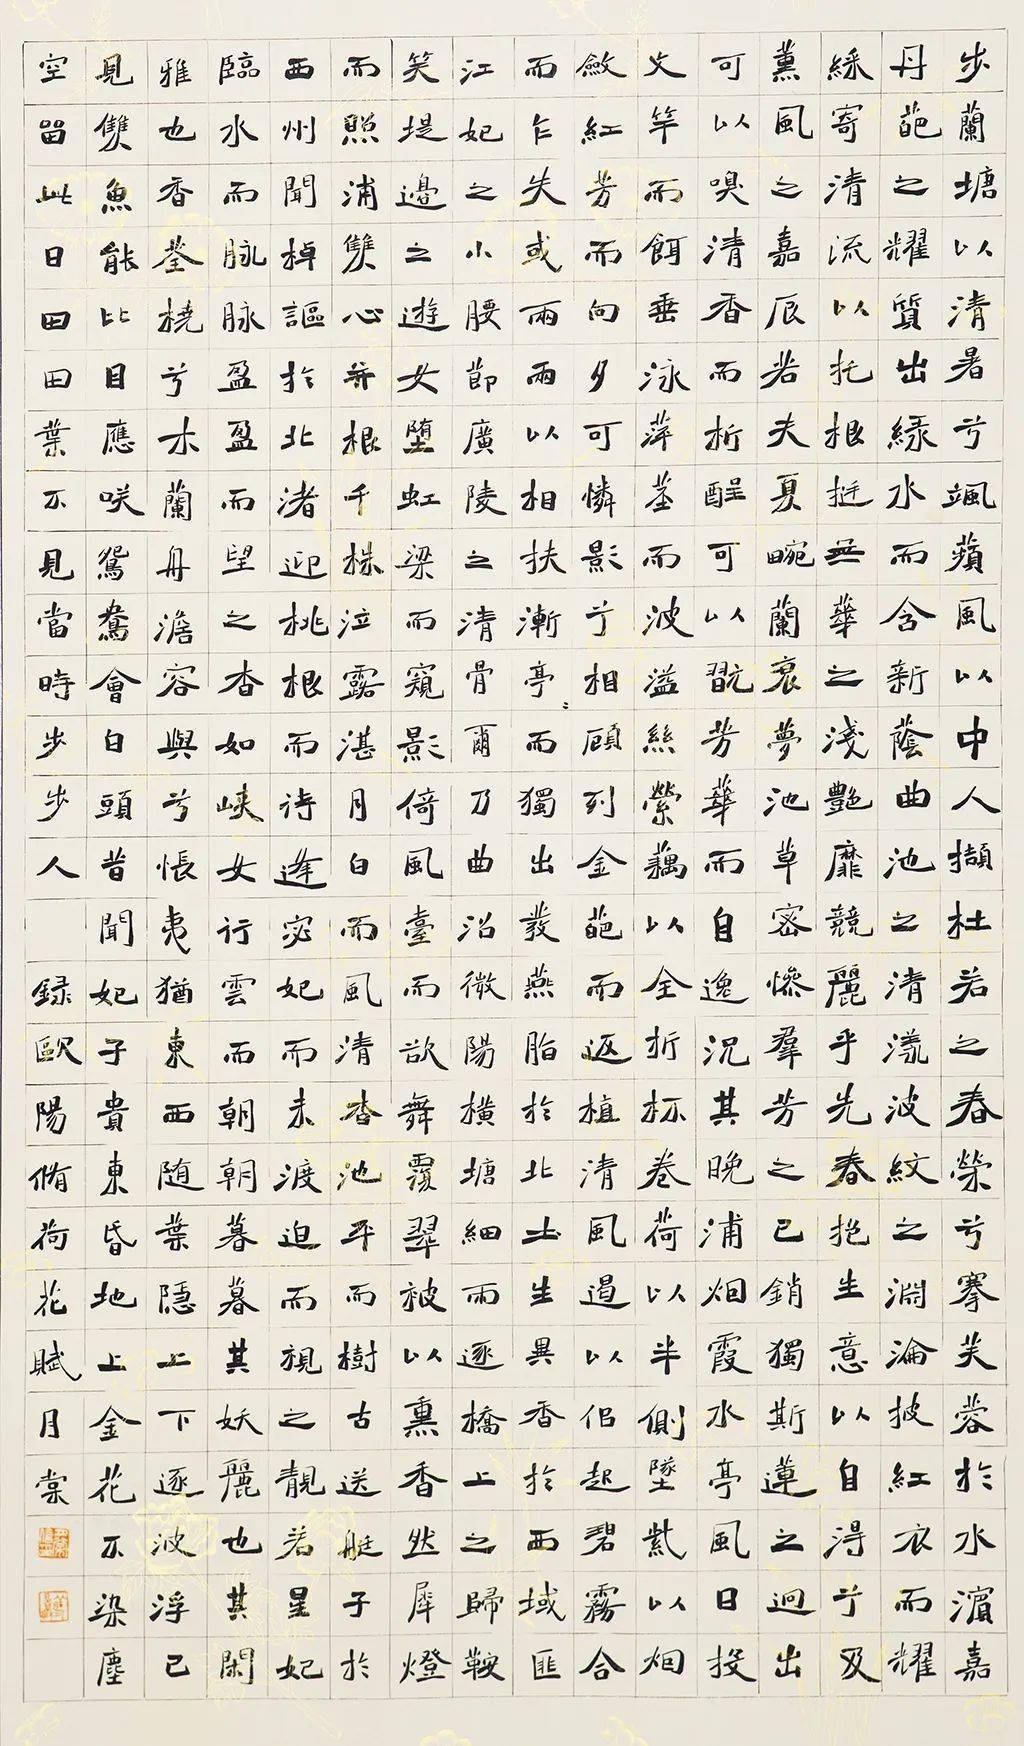 步蘭塘以清暑兮颯蘋風以中人擷杜若之春榮兮搴芙蓉於水濱嘉
丹葩之耀質出緑水而含新蔭曲池之清漪波紋之淵淪披紅衣而耀
綵寄清流以托根挺無華之淺艷靡競麗乎先春抱生意以自得兮及
薰風之嘉辰若夫夏畹蘭衰夢池草密慘羣芳之已銷獨斯蓮之迥出
可以嗅清香而析酲可以翫芳華而自逸況其晚浦烟霞水亭風日投
文竿而餌垂泳萍莖而波溢絲縈藕以全折杯卷荷以半側墜紫以烟
斂紅芳而向夕可憐影兮相顧列金葩而返植清風過以侶起碧霧合
而乍失或兩兩以相扶漸亭〻而獨出發燕脂於北土生異香於西域匪
江妃之小腰節廣陵之清骨爾乃曲沼微陽橫塘細雨逐橋上之歸鞍
笑堤邊之遊女墮虹梁而窺影倚風臺而欲舞覆翠被以熏香然犀燈
而照浦雙心并根千株泣露湛月白而風清杏池平而樹古送艇子於
西州聞棹謳於北渚迎桃根而待逢宓妃而未渡迫而視之靚若星妃
臨水而脉脉盈盈而望之杳如峽女行雲而朝朝暮暮其妖麗也其閑
雅也香荃橈兮木蘭舟澹容與兮悵夷猶東西隨葉隱上下逐波浮已
見雙魚能比目應咲鴛鴦會白頭昔聞妃子貴東昏地上金花不染塵
空留此日田田葉不見當時步步人 録歐陽脩荷花賦月棠